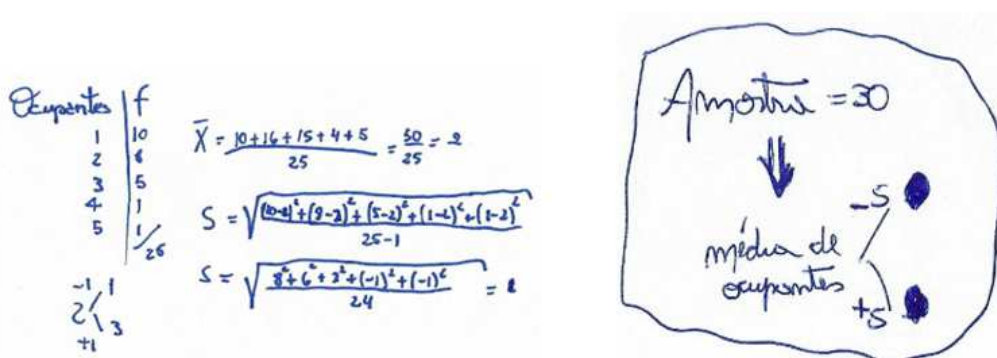 Ocupantes | f
1 | 10
2 | 8
3 | 5
4 | 1
5 | 1
25
X̄ = (10+16+15+4+5)/25 = 50/25 = 2
S = √((10-2)²+(8-2)²+(5-2)²+(1-2)²+(1-2)²)/(25-1)
S = √(8²+6²+3²+(-1)²+(-1)²)/24 =
-1 1
2
+1 3
Amostra = 30
média de
ocupantes
-S
+S